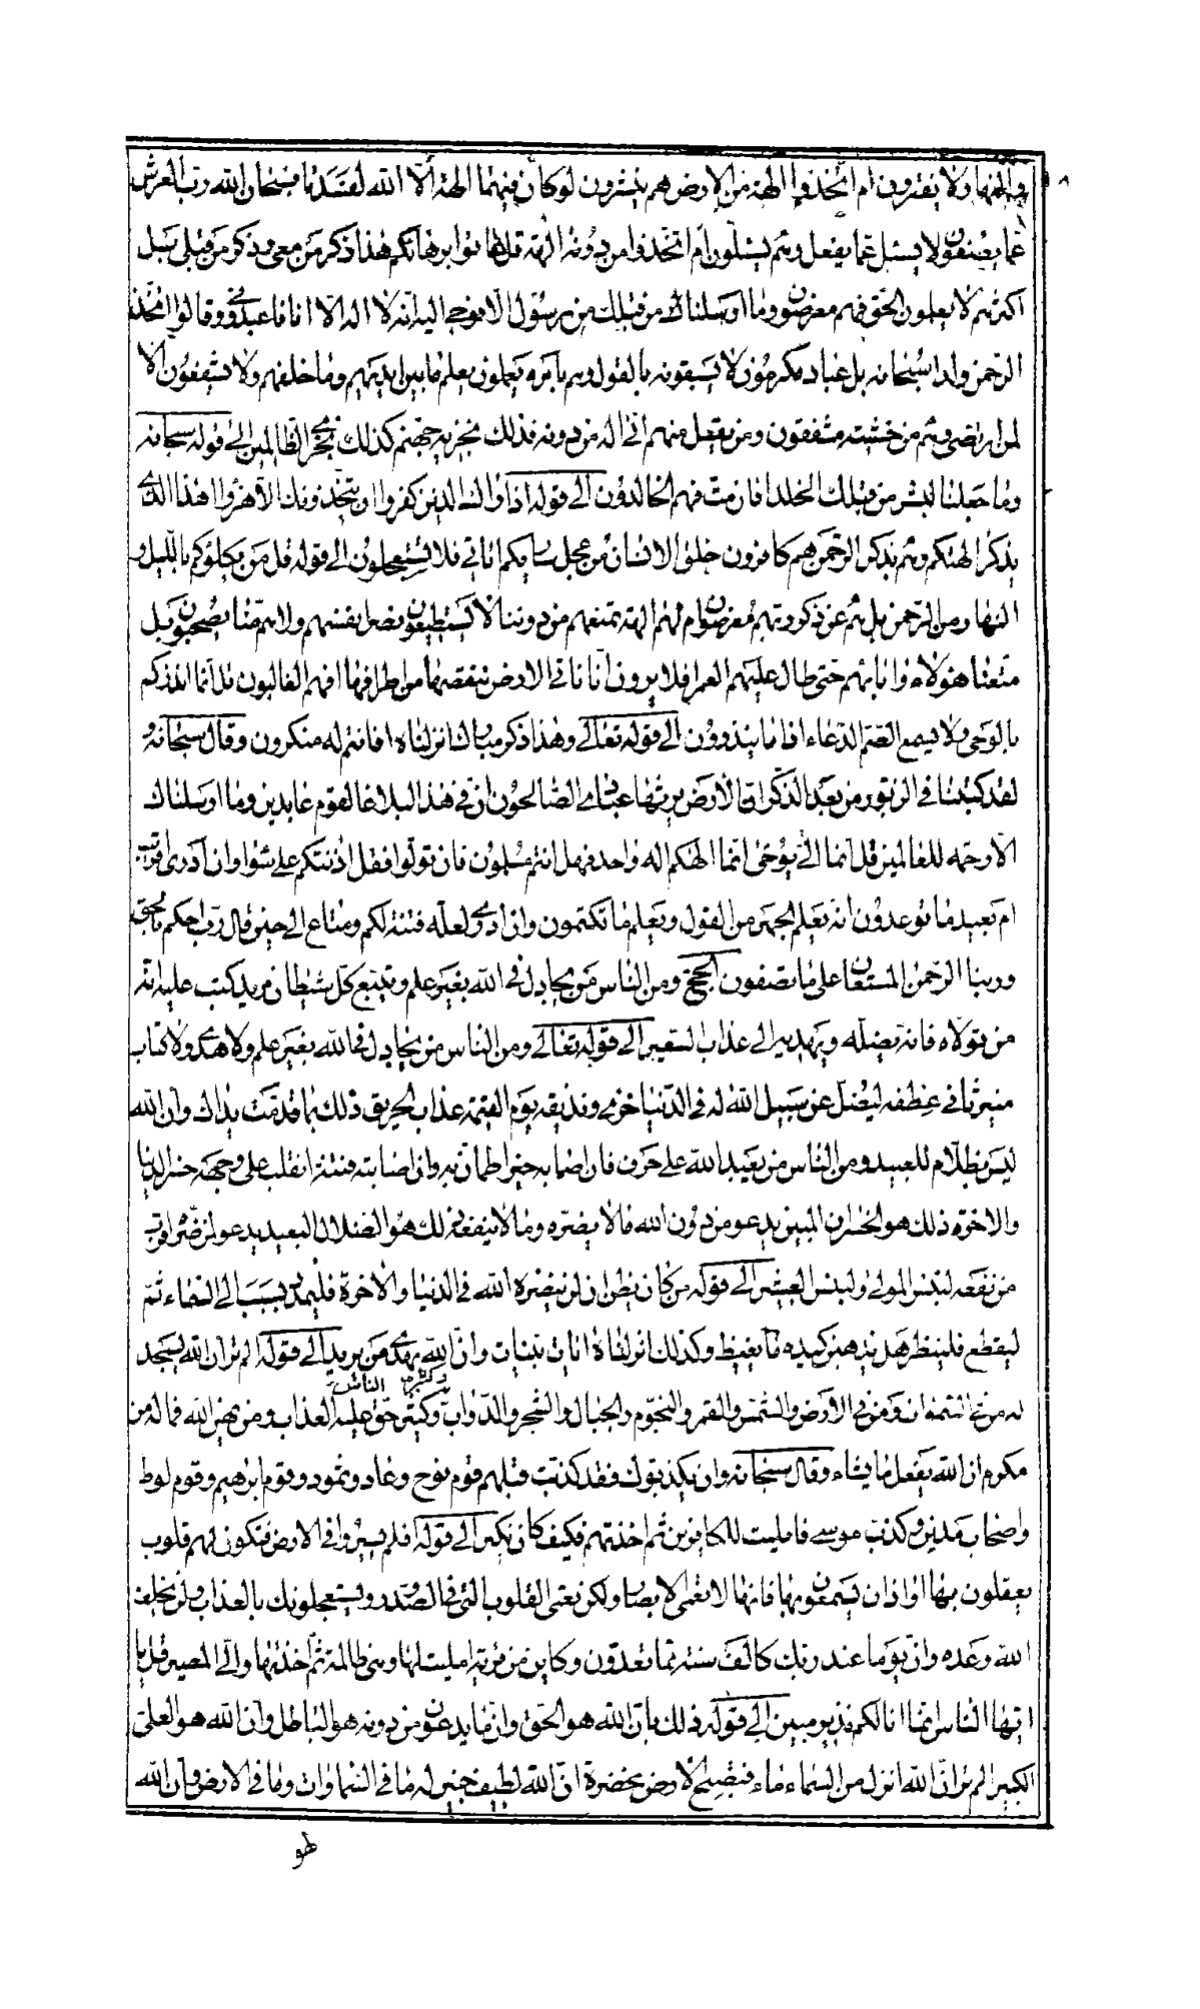 والنهار ولا يفترون ام اتخذوا الهة من الارض هم ينشرون لو كان فيهما الهة الا الله لفسدتا فسبحان الله رب العرش
عما يصفون لا يسئل عما يفعل وهم يسئلون ام اتخذوا من دونه الهة قل هاتوا برهانكم هذا ذكر من معي وذكر من قبلي بل
اكثرهم لا يعلمون الحق فهم معرضون وما ارسلناك من قبلك من رسول الا نوحي اليه انه لا اله الا انا فاعبدون وقالوا اتخذ
الرحمن ولدا سبحانه بل عباد مكرمون لا يسبقونه بالقول وهم بامره يعملون يعلم ما بين ايديهم وما خلفهم ولا يشفعون الا
لمن ارتضى وهم من خشيته مشفقون ومن يقل منهم اني اله من دونه فذلك نجزيه جهنم كذلك نجزي الظالمين الى قوله سبحانه
وما جعلنا لبشر من قبلك الخلد افان مت فهم الخالدون الى قوله اذا راك الذين كفروا ان يتخذونك الا هزوا اهذا الذي
يذكر الهتكم وهم بذكر الرحمن هم كافرون خلق الانسان من عجل ساريكم اياتي فلا تستعجلون الى قوله قل من يكلؤكم بالليل و
النهار من الرحمن بل هم عن ذكر ربهم معرضون ام لهم الهة تمنعهم من دوننا لا يستطيعون نصر انفسهم ولا هم منا يصحبون بل
متعنا هؤلاء واباءهم حتى طال عليهم العمر افلا يرون انا ناتي الارض ننقصها من اطرافها افهم الغالبون قل انما انذركم
بالوحي ولا يسمع الصم الدعاء اذا ما ينذرون الى قوله تعالى وهذا ذكر مبارك انزلناه افانتم له منكرون وقال سبحانه و
لقد كتبنا في الزبور من بعد الذكر ان الارض يرثها عبادي الصالحون ان في هذا لبلاغا لقوم عابدين وما ارسلناك
الا رحمة للعالمين قل انما الي يوحى انما الهكم اله واحد فهل انتم مسلمون فان تولوا فقل اذنتكم على سواء وان ادرى اقريب
ام بعيد ما توعدون انه يعلم الجهر من القول ويعلم ما تكتمون وان ادري لعله فتنة لكم ومتاع الى حين قال رب احكم بالحق
وربنا الرحمن المستعان على ما تصفون الحج ومن الناس من يجادل في الله بغير علم ويتبع كل شيطان مريد كتب عليه انه
من تولاه فانه يضله ويهديه الى عذاب السعير الى قوله تعالى ومن الناس من يجادل في الله بغير علم ولا هدى ولا كتاب
منير ثاني عطفه ليضل عن سبيل الله له في الدنيا خزي ونذيقه يوم القيمة عذاب الحريق ذلك بما قدمت يداك وان الله
ليس بظلام للعبيد ومن الناس من يعبد الله على حرف فان اصابه خير اطمان به وان اصابته فتنة انقلب على وجهه خسر الدنيا
والاخرة ذلك هو الخسران المبين يدعو من دون الله ما لا يضره وما لا ينفعه ذلك هو الضلال البعيد يدعو لمن ضره اقرب
من نفعه لبئس المولى ولبئس العشير الى قوله من كان يظن ان لن ينصره الله في الدنيا والاخرة فليمدد بسبب الى السماء ثم
ليقطع فلينظر هل يذهبن كيده ما يغيظ وكذلك انزلناه ايات بينات وان الله يهدي من يريد الى قوله الم تر ان الله يسجد
له من في السموات ومن في الارض والشمس والقمر والنجوم والجبال والشجر والدواب وكثير من الناس وكثير حق عليه العذاب ومن يهن الله فما له من
مكرم ان الله يفعل ما يشاء وقال سبحانه وان يكذبوك فقد كذبت قبلهم قوم نوح وعاد وثمود وقوم ابرهيم وقوم لوط
واصحاب مدين وكذب موسى فامليت للكافرين ثم اخذتهم فكيف كان نكير الى قوله افلم يسيروا في الارض فتكون لهم قلوب
يعقلون بها او اذان يسمعون بها فانها لا تعمى الابصار ولكن تعمى القلوب التي في الصدور ويستعجلونك بالعذاب ولن يخلف
الله وعده وان يوما عند ربك كالف سنة مما تعدون وكاين من قرية امليت لها وهي ظالمة ثم اخذتها والي المصير قل يا
ايها الناس انما انا لكم نذير مبين الى قوله ذلك بان الله هو الحق وان ما يدعون من دونه هو الباطل وان الله هو العلي
الكبير الم تر ان الله انزل من السماء ماء فتصبح الارض مخضرة ان الله لطيف خبير له ما في السماوات وما في الارض وان الله
لهو